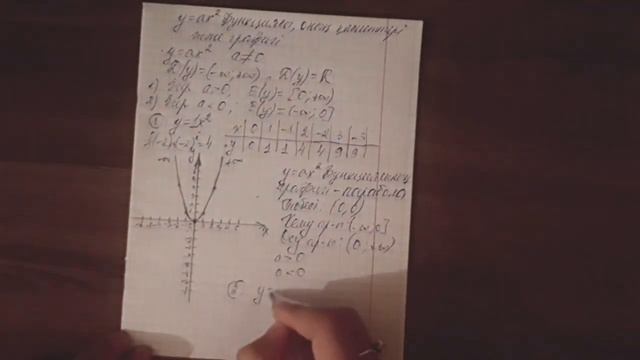 y=ax² функциясы, оның қасиеттері
және графигі
y=ax² a≠0
D(y)=(-∞;+∞) D(y)=R
1) Егер a>0, E(y)=[0;+∞)
2) Егер a<0; E(y)=(-∞;0]
① y=1x²
x 0 1 -1 2 -2 3 -3
y 0 1 1 4 4 9 9
(-2)·(-2)=4
y=ax² функциясының
графигі - парабола
Төбесі: (0,0)
Кему ар-ғы: (-∞,0]
Өсу ар-ғы: (0;+∞)
a>0
a<0
② y=